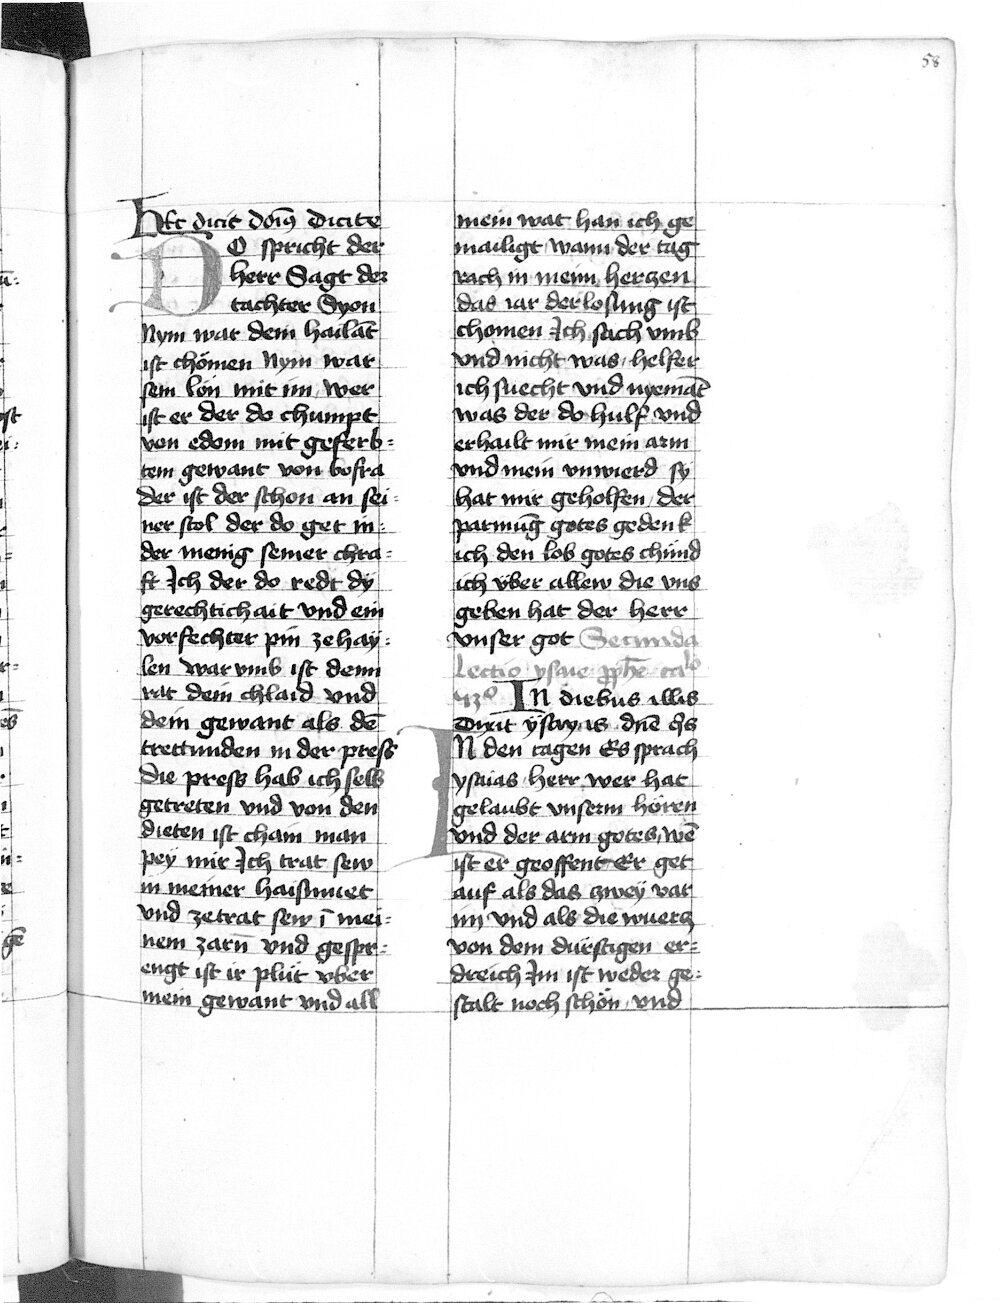 58
Hec dicit dōīꝰ Dicite
DO spricht der
herr Sagt der
tachter Syon
Nym war dein hailāt
ist chömen Nym war
sein lön mit im, wer
ist er der do chumpt
von edom mit geferb=
tem gewant von bosra
der ist der schon an sei=
ner stol der do get in=
der menig seiner chra=
ft Ich der do redt dy
gerechtichait vnd ein
vorfechter pin ze hay=
len war vmb ist denn
rat dein chlaid vnd
dein gewant als dē
trettunden in der press
die press hab ich selb
getreten vnd von den
dieten ist chain man
pey mir Ich trat sew
in meiner haismuet
vnd zetrat sew ī mei=
nem zarn vnd gespr=
engt ist ir plüt vber
mein gewant vnd all
mein wat han ich ge
mailigt wann der tag
rach in meim herzen
das iar der losung ist
chomen Ich sach vmb
vnd nicht was, helfer
ich suecht vnd nyemāt
was der do hulf vnd
erhailt mir mein arm
vnd mein vnwierd sy
hat mir geholfen, der
parmūg gotes gedenk
ich den lob gotes chünd
ich vber allew die vns
geben hat der herr
vnser got Secunda
Lectio ysaie ꝓphē ca
IN diebus illis
Dixit ysayas dnē
IN den tagen Es sprach
ysaias herr wer hat
gelaubt vnserm hören
vnd der arm gotes, wē
ist er geoffent Er get
auf als das zwey var
im vnd als die wuercz
von dem dürstigen er=
dreich Im ist weder ge=
stalt noch schön, vnd